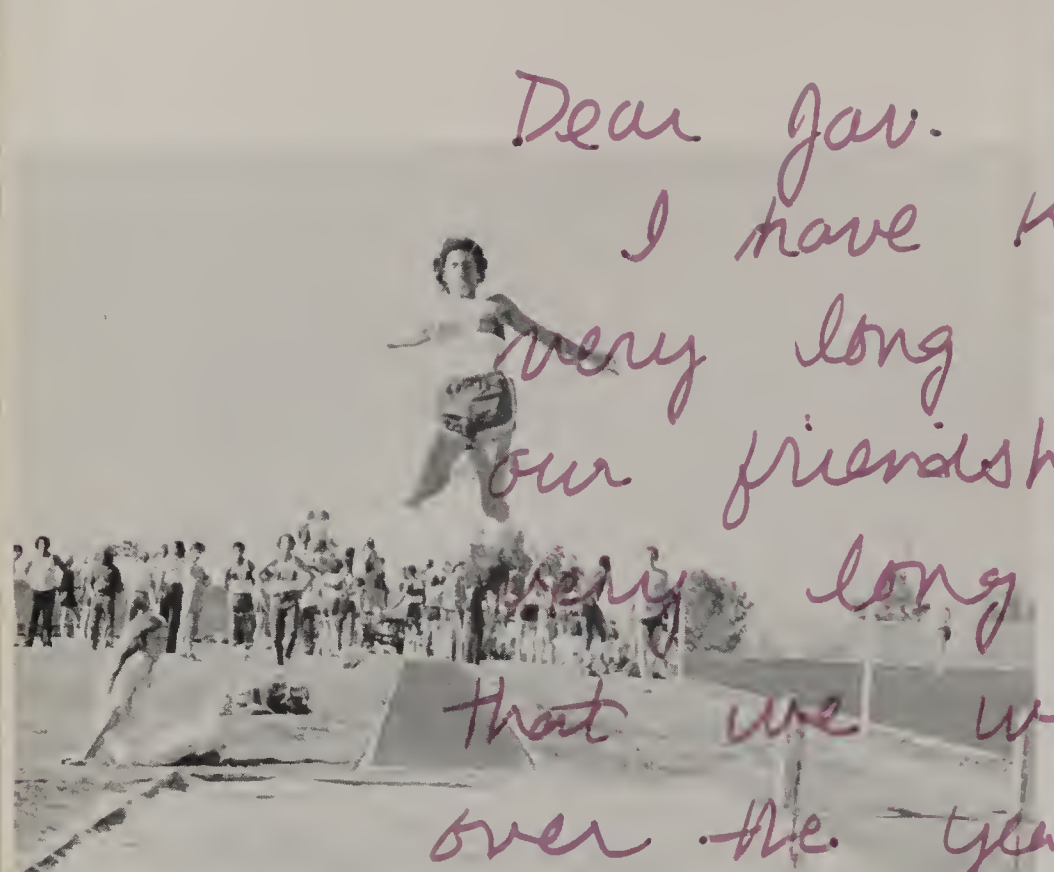 Dear Jav.
I have
very long
our friendsh
very long
that we w
over the yea